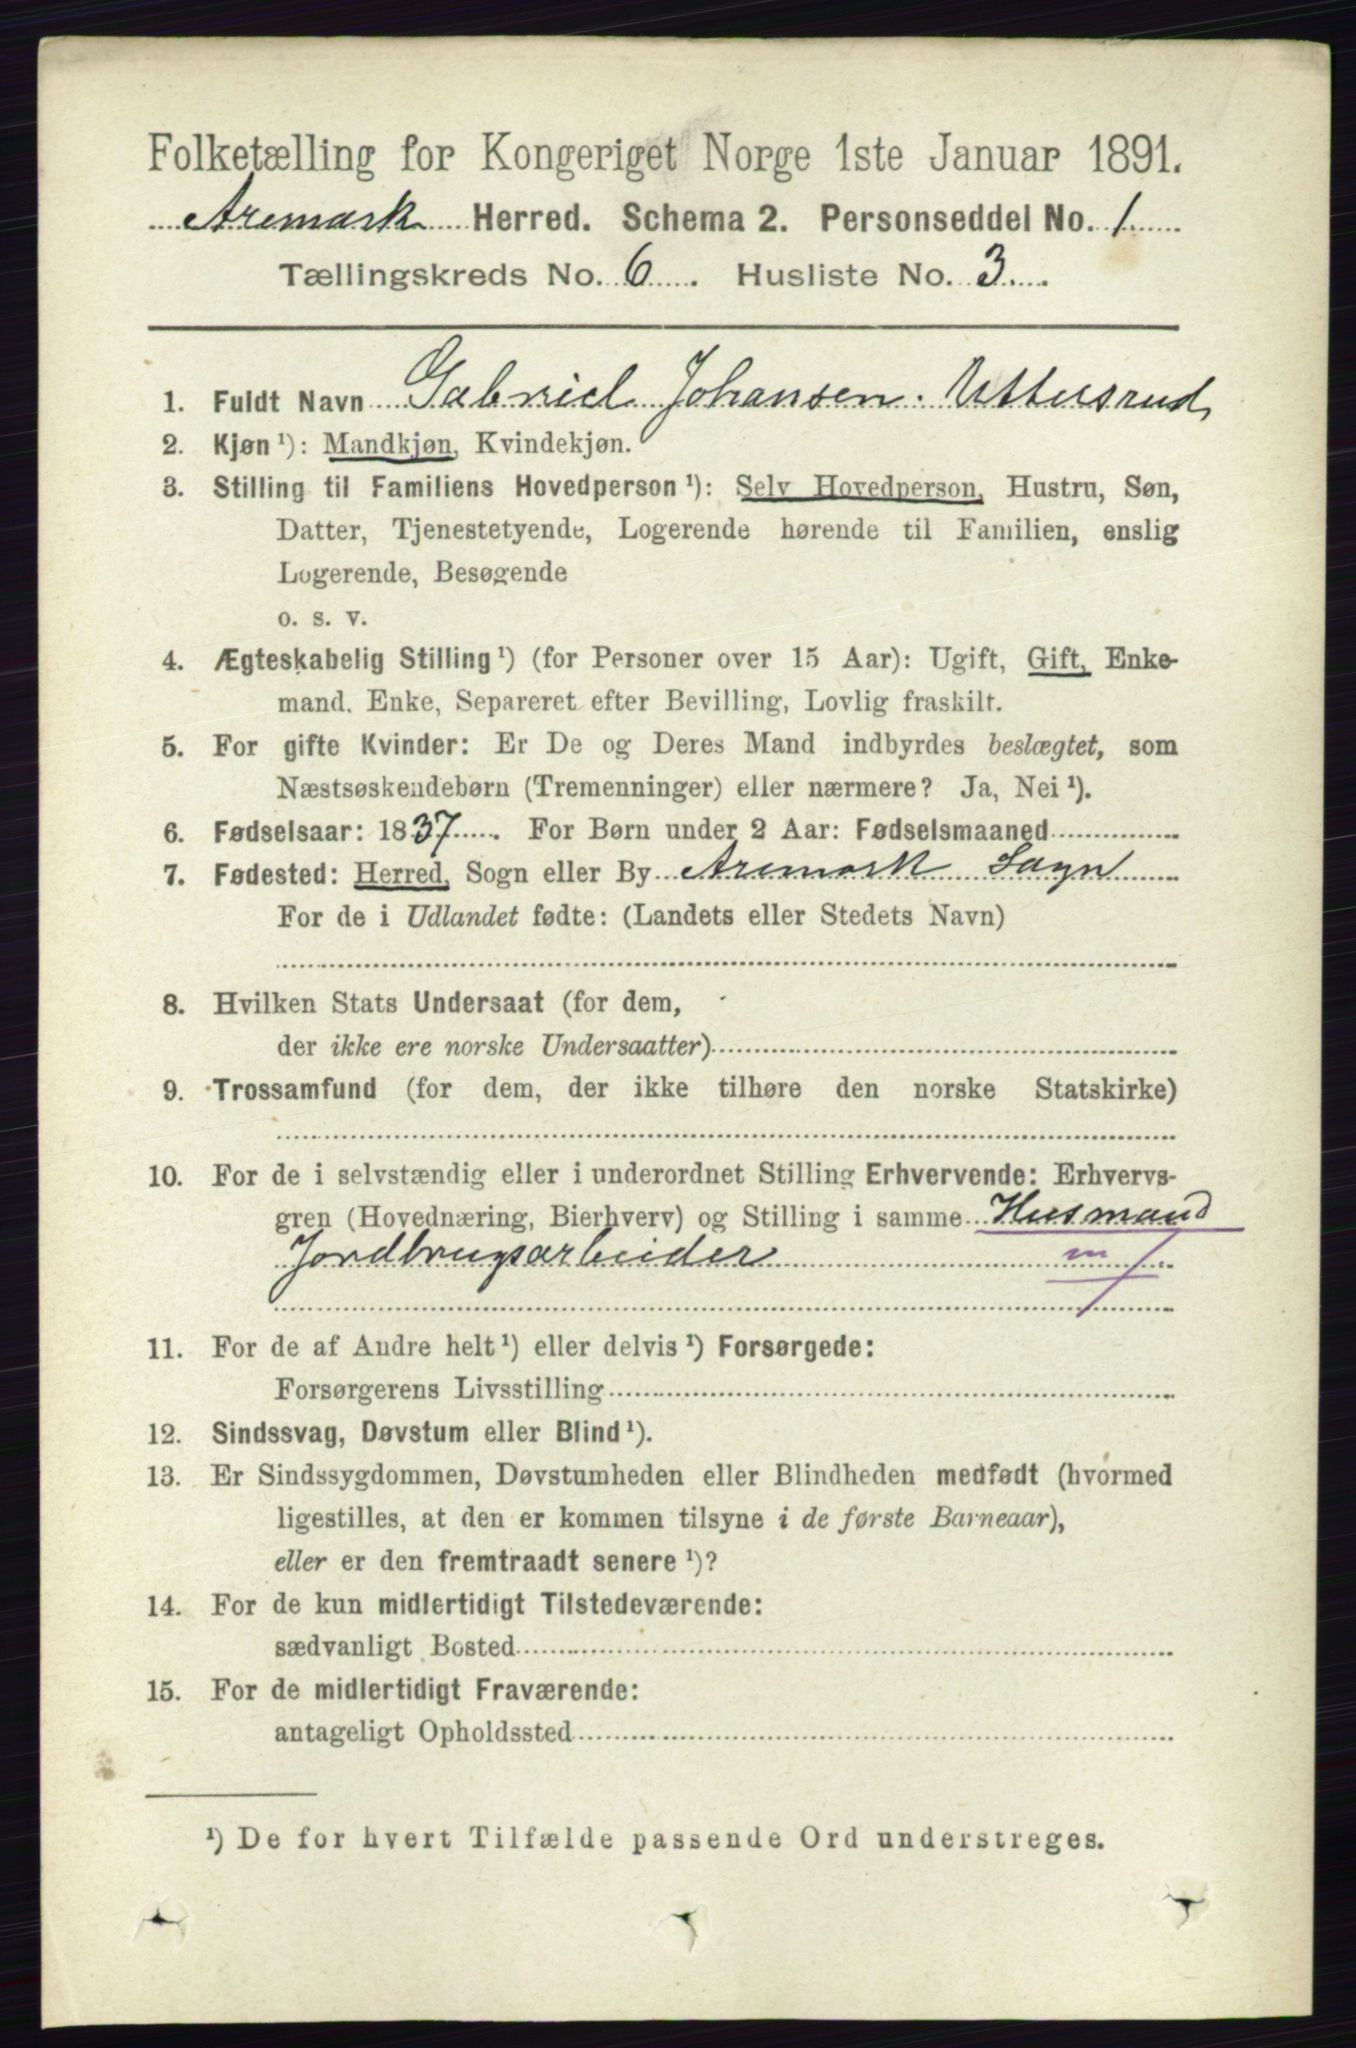 Folketælling for Kongeriget Norge 1ste Januar 1891.
Aremark Herred. Schema 2. Personseddel No. 1
Tællingskreds No. 6. Husliste No. 3.
1. Fuldt Navn Gabriel Johansen. Uttersrud
2. Kjøn¹): Mandkjøn, Kvindekjøn.
3. Stilling til Familiens Hovedperson¹): Selv Hovedperson, Hustru, Søn,
Datter, Tjenestetyende, Logerende hørende til Familien, enslig
Logerende, Besøgende
o. s. v.
4. Ægteskabelig Stilling¹) (for Personer over 15 Aar): Ugift, Gift, Enke-
mand, Enke, Separeret efter Bevilling, Lovlig fraskilt.
5. For gifte Kvinder: Er De og Deres Mand indbyrdes beslægtet, som
Næstsøskendebørn (Tremenninger) eller nærmere? Ja, Nei¹).
6. Fødselsaar: 1837. For Børn under 2 Aar: Fødselsmaaned
7. Fødested: Herred, Sogn eller By Aremark Sogn
For de i Udlandet fødte: (Landets eller Stedets Navn)
8. Hvilken Stats Undersaat (for dem,
der ikke ere norske Undersaatter)
9. Trossamfund (for dem, der ikke tilhøre den norske Statskirke)
10. For de i selvstændig eller i underordnet Stilling Erhvervende: Erhvervs-
gren (Hovednæring, Bierhverv) og Stilling i samme Husmand
Jordbrugsarbeider m
11. For de af Andre helt¹) eller delvis¹) Forsørgede:
Forsørgerens Livsstilling
12. Sindssvag, Døvstum eller Blind¹).
13. Er Sindssygdommen, Døvstumheden eller Blindheden medfødt (hvormed
ligestilles, at den er kommen tilsyne i de første Barneaar),
eller er den fremtraadt senere¹)?
14. For de kun midlertidigt Tilstedeværende:
sædvanligt Bosted
15. For de midlertidigt Fraværende:
antageligt Opholdssted
¹) De for hvert Tilfælde passende Ord understreges.